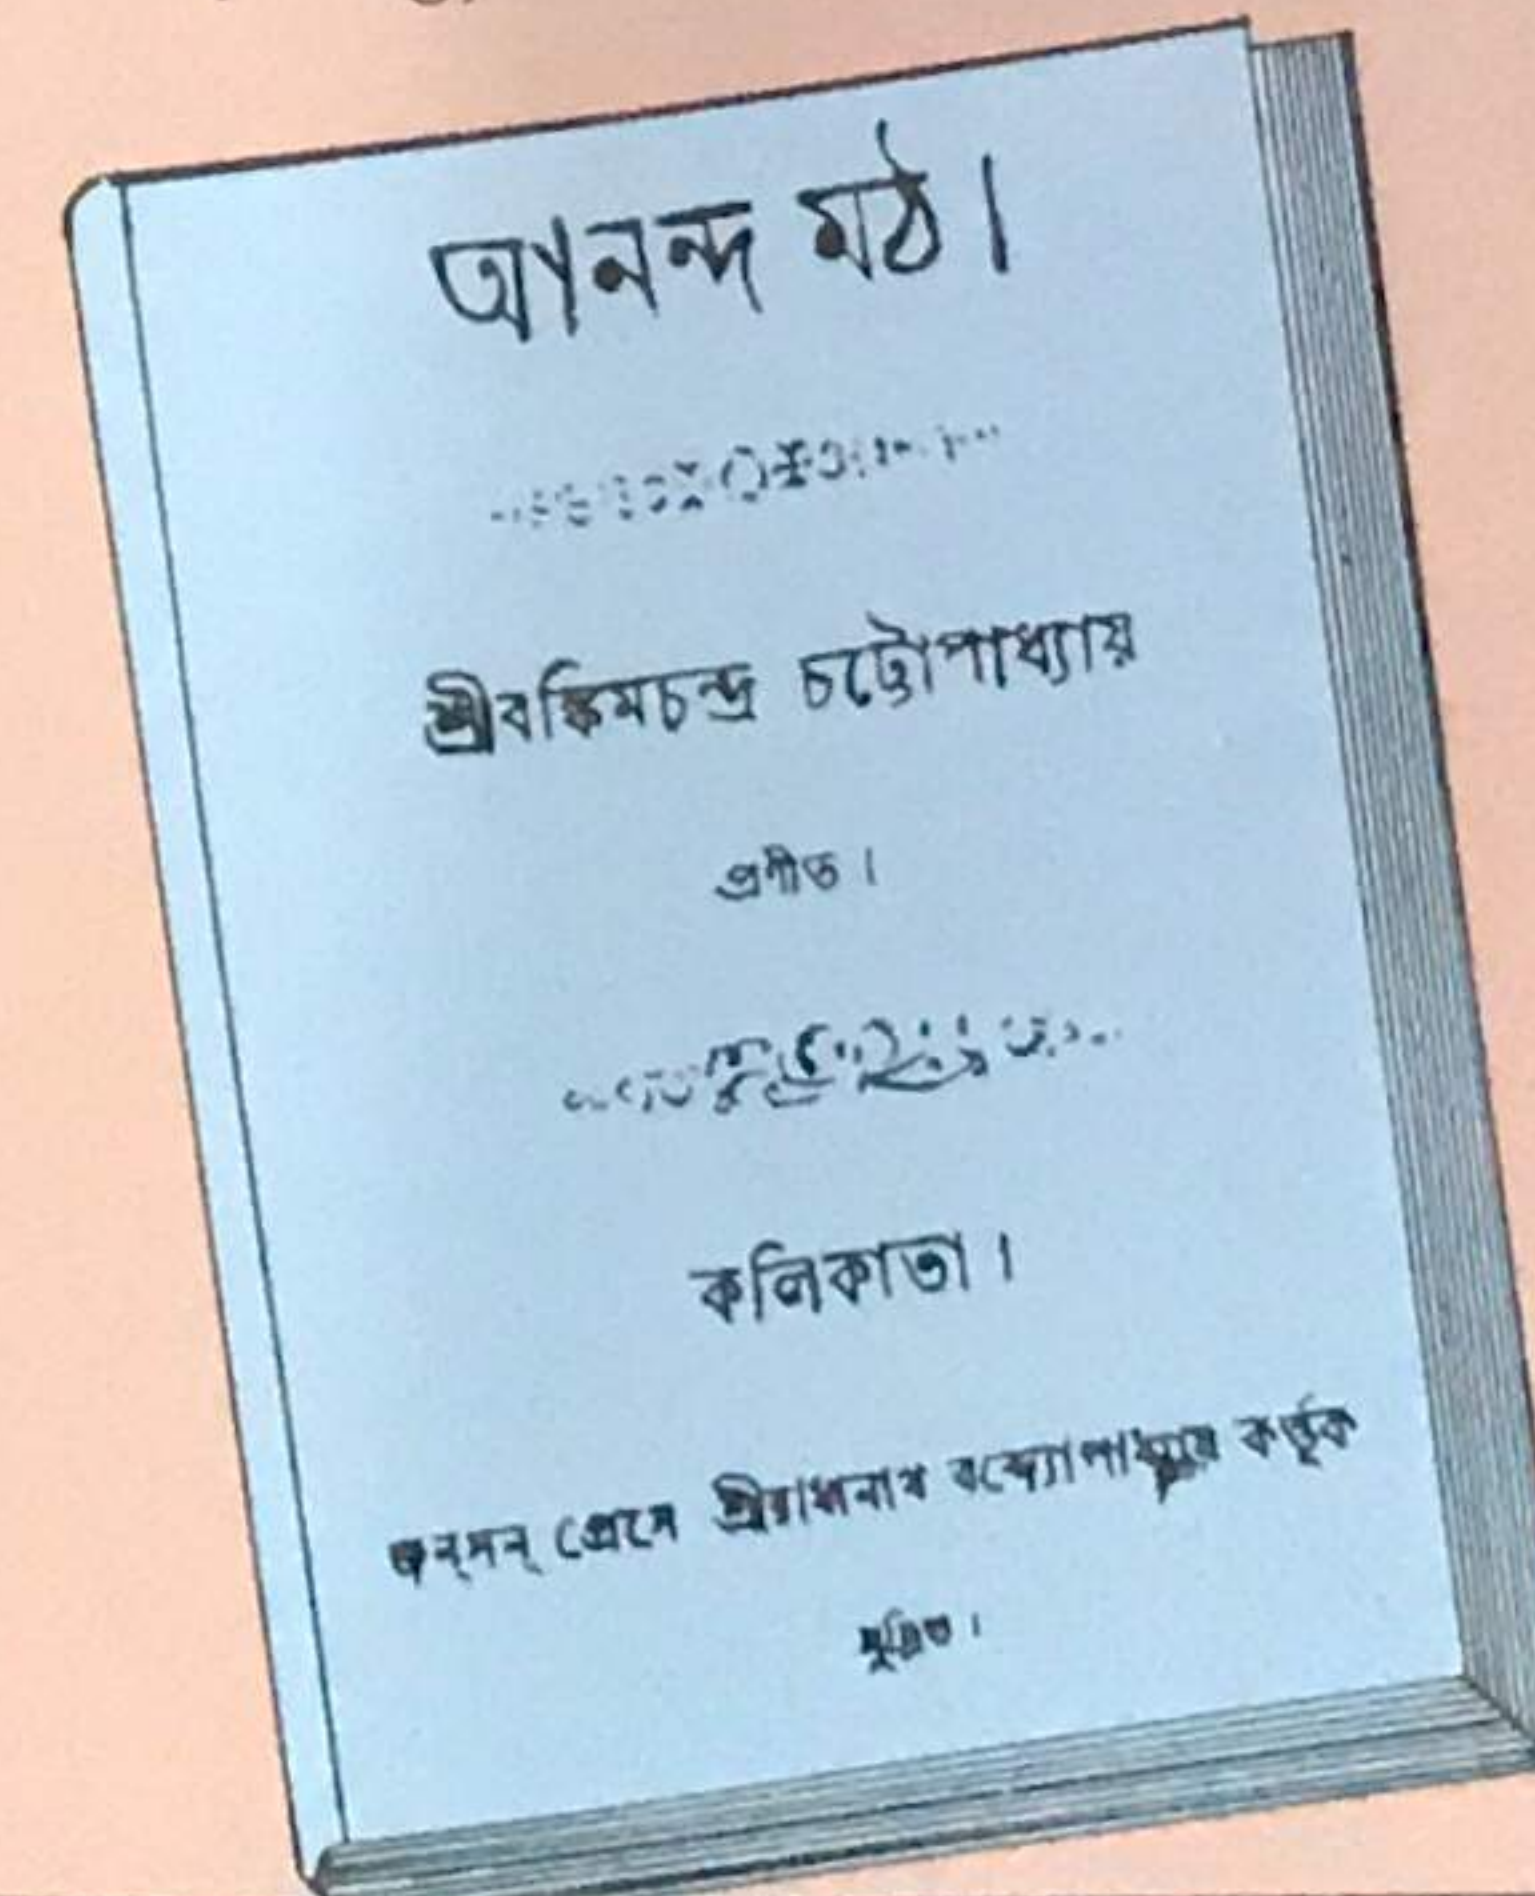 আনন্দ মঠ।
শ্রীবঙ্কিমচন্দ্র চট্টোপাধ্যায়
প্রণীত।
কলিকাতা।
জন্‌সন্ প্রেসে শ্রীরাধানাথ বন্দ্যোপাধ্যায় কর্ত্তৃক
মুদ্রিত।